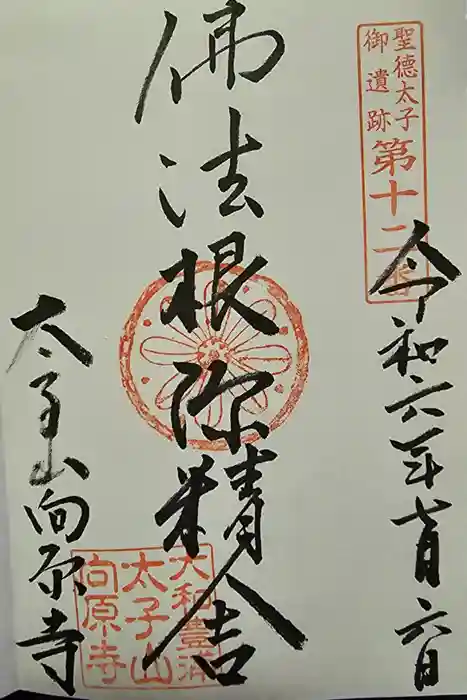 聖徳太子
御遺跡
第十二番
令和六年七月六日
佛法根源精舎
太子山向原寺
大和豊浦
太子山
向原寺